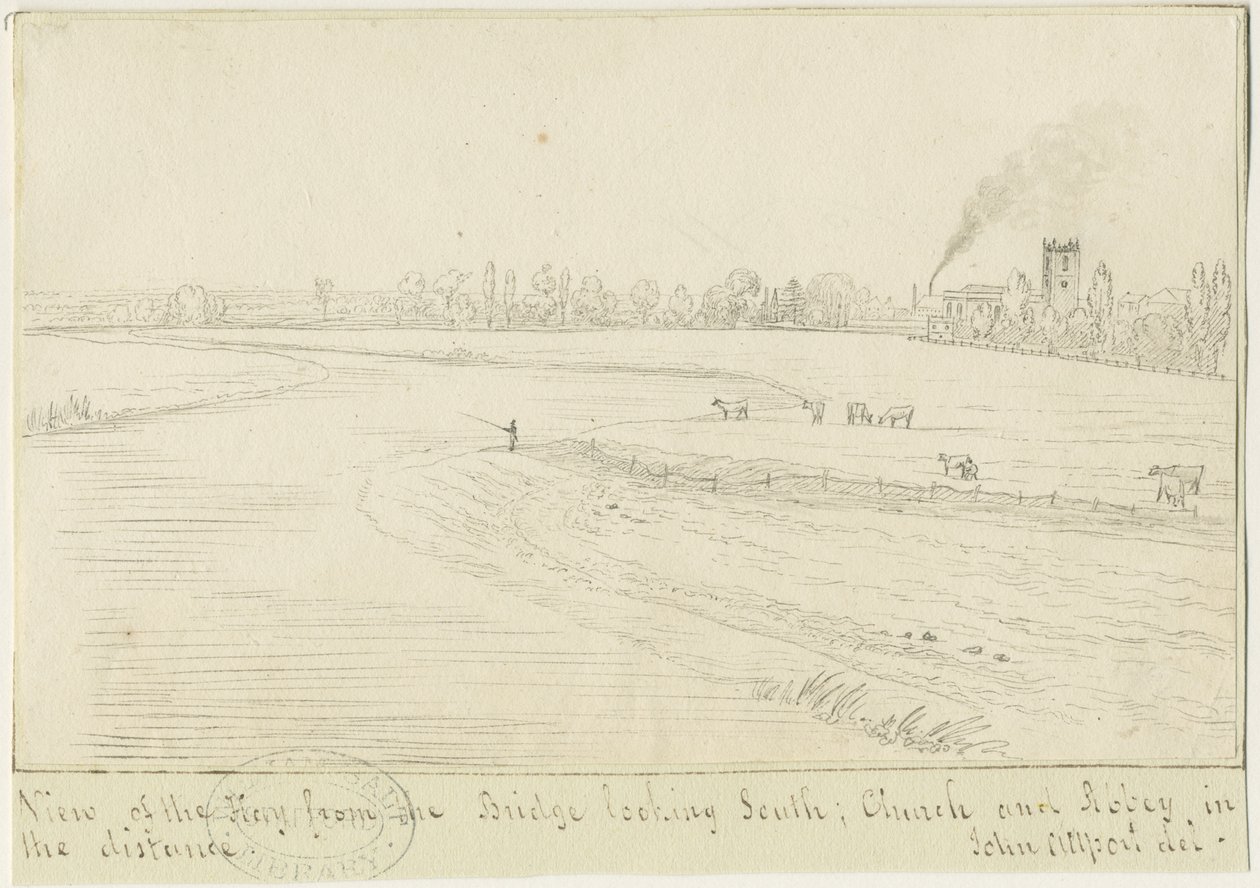 View of the Hay from the Bridge looking South; Church and Abbey in
the distance.
John Allport del -
SALT
LIBRARY